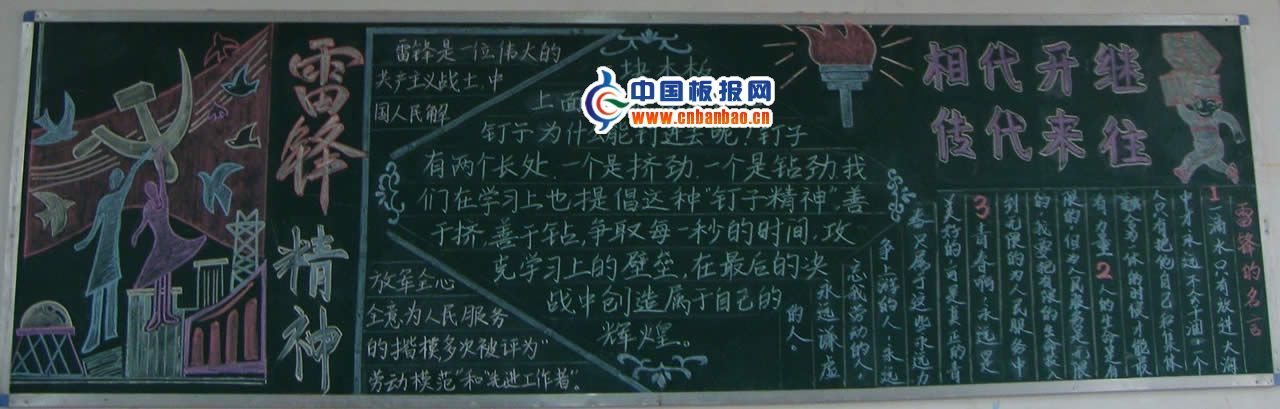 雷锋精神
雷锋是一位伟大的
共产主义战士,中
国人民解
放军全心
全意为人民服务
的楷模多次被评为"
劳动模范"和"先进工作者"。
中国板报网
www.cnbanbao.cn
上面
钉子为什么能钉进去呢?钉子
有两个长处,一个是挤劲,一个是钻劲我
们在学习上也提倡这种"钉子精神",善
于挤,善于钻,争取每一秒的时间,攻
克学习上的壁垒,在最后的决
战中创造属于自己的
辉煌。
相代开继
传代来往
雷锋的名言
1一滴水只有放进大海
中才永远不会干涸,一个
人只有把他自己和集体
融合为一体的时候才能最
有力量2人的生命是有
限的,但为人民服务是无限
的,我要把有限的生命投入
到无限的为人民服务中
3青春啊,永远是
美好的,可是真正的青
春只属于这些永远力
争上游的人,永远
忘我劳动的人,
永远谦虚
的人。